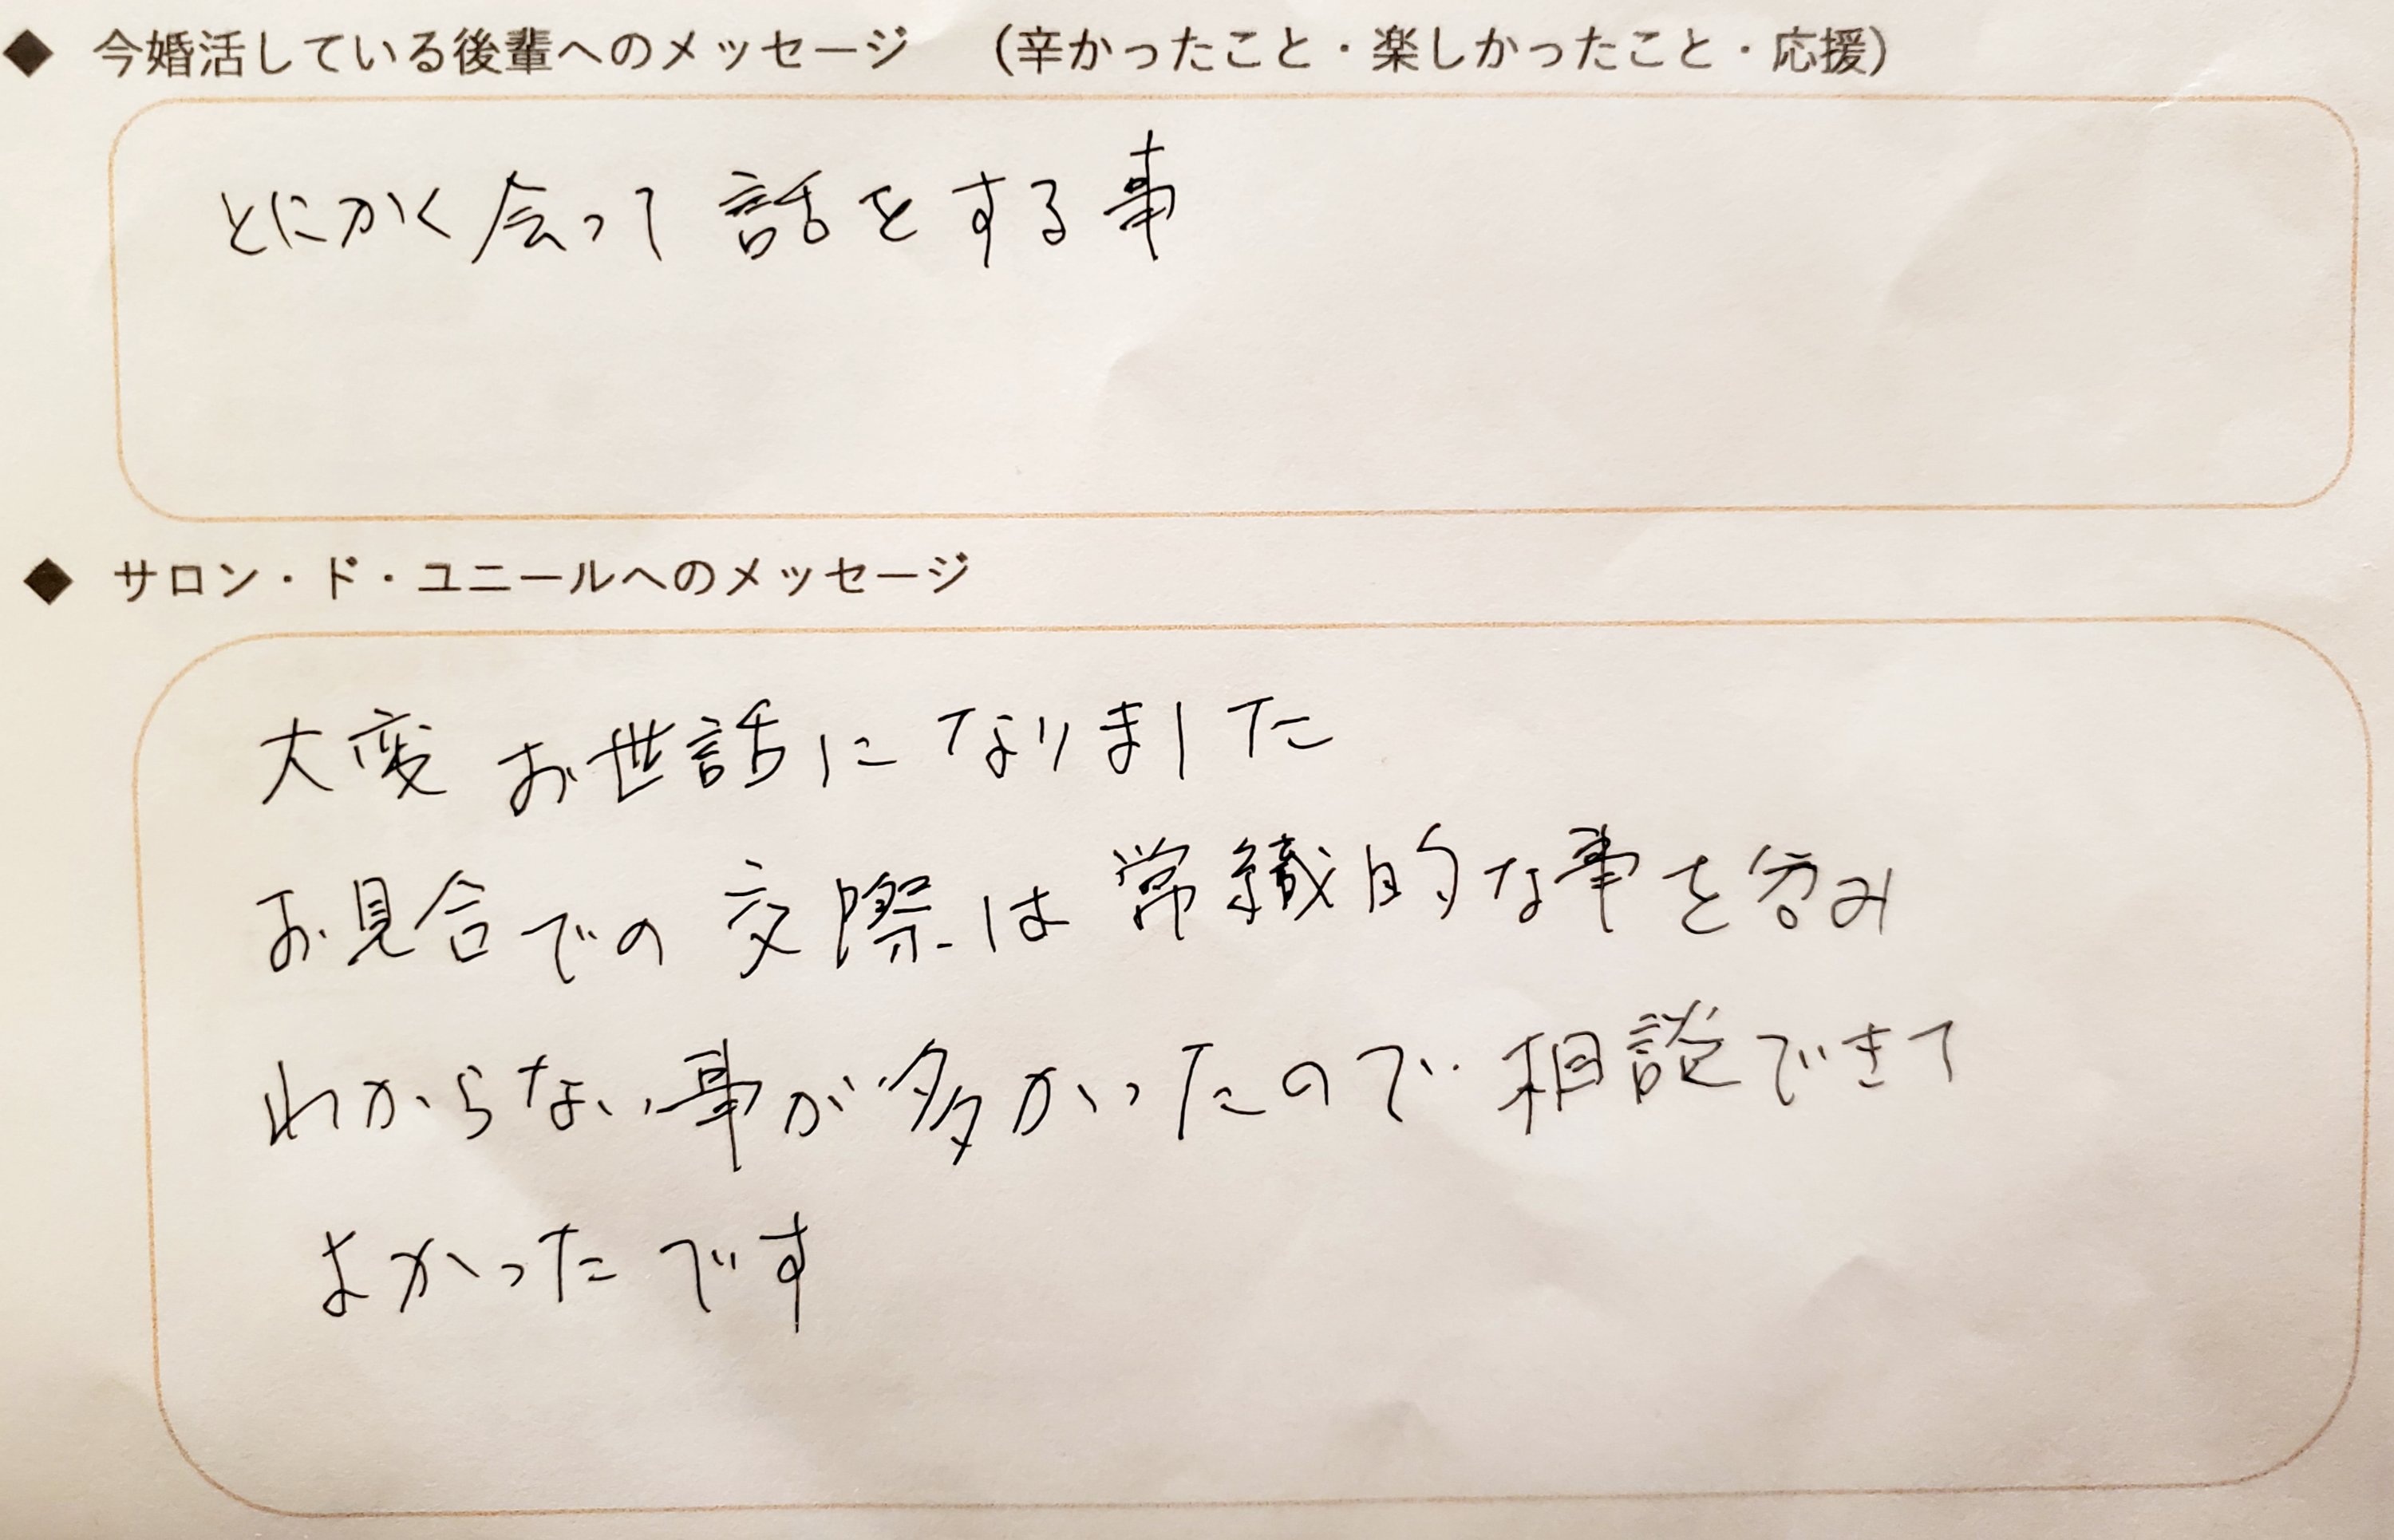 ◆ 今婚活している後輩へのメッセージ （辛かったこと・楽しかったこと・応援）
とにかく会って話をする事
◆ サロン・ド・ユニールへのメッセージ
大変お世話になりました
お見合での交際は常織的な事を含み
わからない事が多かったので相談できて
よかったです